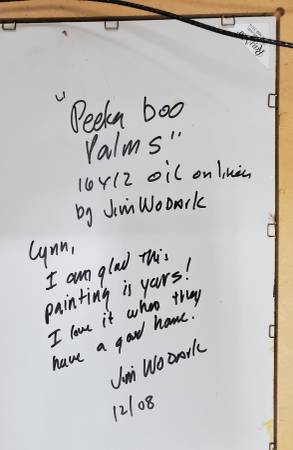 "Peeka boo
Palms"
16x12 oil on linen
by Jim Wodark
Lynn,
I am glad this
painting is yours!
I love it when they
have a good home.
Jim Wodark
12/08